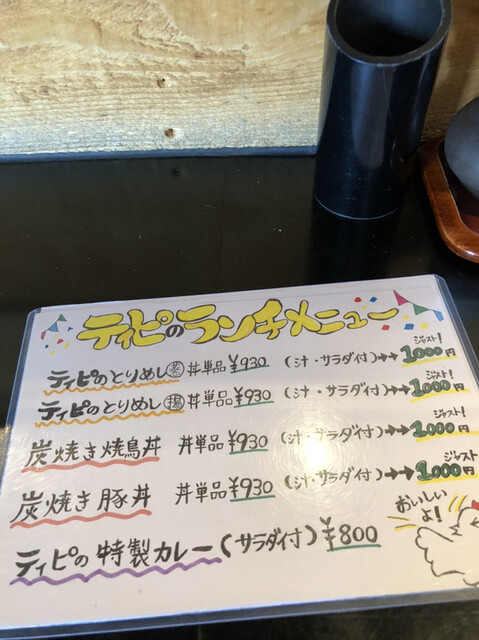 ティピのランチメニュー
ティピのとりめし 丼単品¥930 (汁・サラダ付)→→ ジャスト! 1,000円
ティピのとりめし揚 丼単品¥930 (汁・サラダ付)→→ ジャスト! 1,000円
炭焼き焼鳥丼 丼単品¥930 (汁・サラダ付)→→ ジャスト! 1,000円
炭焼き豚丼 丼単品¥930 (汁・サラダ付)→→ ジャスト! 1,000円
ティピの特製カレー(サラダ付)¥800
おいしいよ!